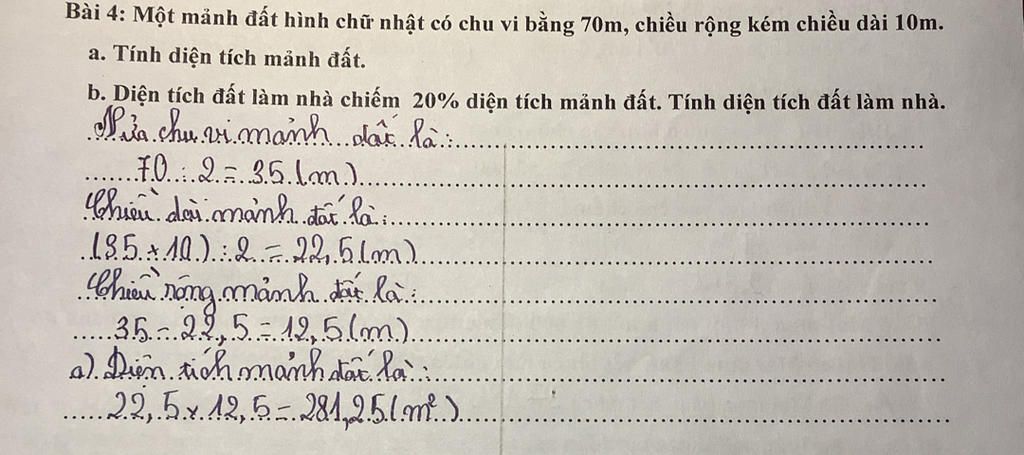 Bài 4: Một mảnh đất hình chữ nhật có chu vi bằng 70m, chiều rộng kém chiều dài 10m.
a. Tính diện tích mảnh đất.
b. Diện tích đất làm nhà chiếm 20% diện tích mảnh đất. Tính diện tích đất làm nhà.
Nửa chu vi mảnh đất là:
70 : 2 = 35 (m)
Chiều dài mảnh đất là:
(35 + 10) : 2 = 22,5 (m)
Chiều rộng mảnh đất là:
35 - 22,5 = 12,5 (m)
a) Diện tích mảnh đất là:
22,5 x 12,5 = 281,25 (m²)